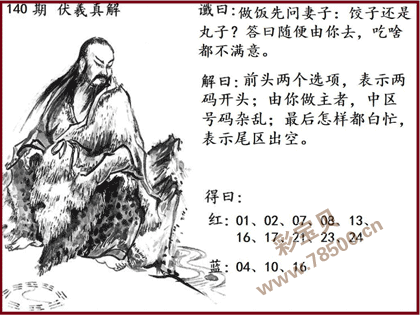 140 期 伏羲真解
谶曰：做饭先问妻子：饺子还是
丸子？答曰随便由你去，吃啥
都不满意。
解曰：前头两个选项，表示两
码开头；由你做主者，中区
号码杂乱；最后怎样都白忙，
表示尾区出空。
得曰：
红：01、02、07、08、13、
16、17、21、23、24
蓝：04、10、16
彩宝贝
www.78500.cn